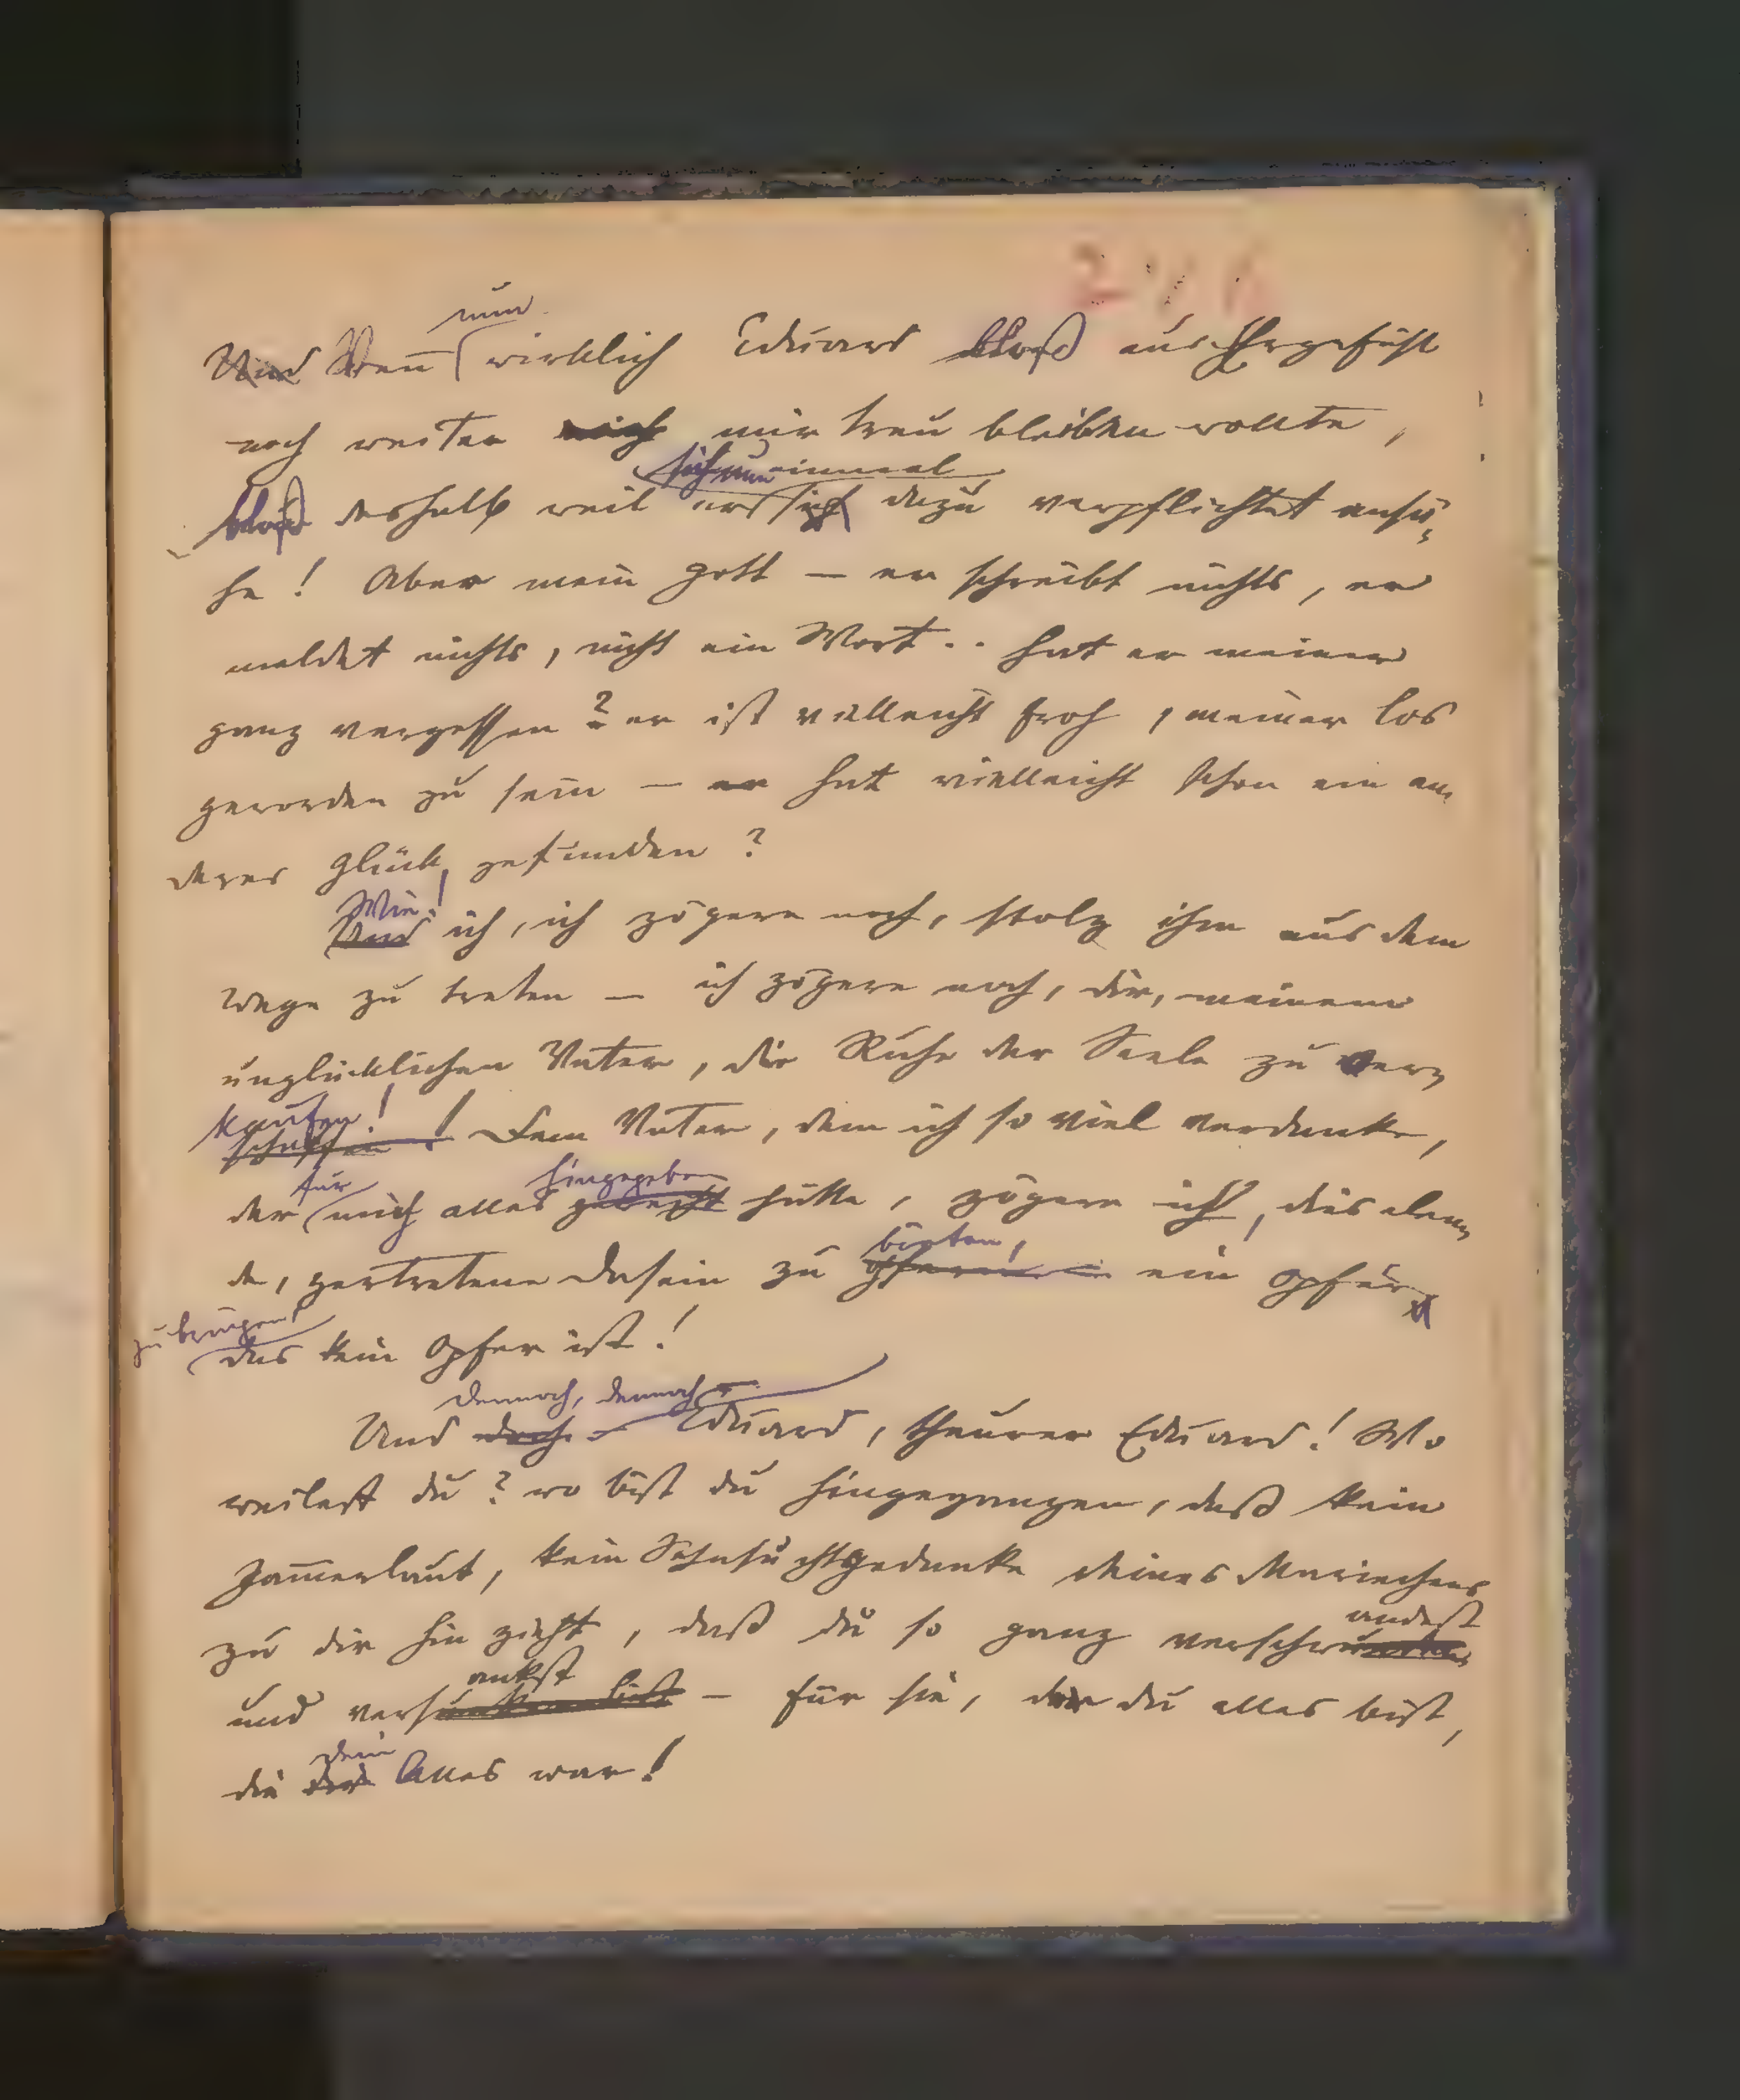 246
nun
Und Wenn wirklich Eduard bloß aus Ehrgefühl
noch weiter mir treu bleiben wollte,
sich nun einmal
bloß deshalb weil er sich dazu verpflichtet ansä-
he! Aber mein Gott — er schreibt nichts, er
meldet nichts, nicht ein Wort.. hat er meiner
ganz vergessen? er ist vielleicht froh, meiner los
geworden zu sein — er hat vielleicht schon ein an-
deres Glück gefunden?
Wie!
Und ich, ich zögere noch, stolz ihm aus dem
Wege zu treten — ich zögere noch, dir, meinem
unglücklichen Vater, die Ruhe der Seele zu er-
kaufen!
schaffen! Dem Vater, dem ich so viel verdanke,
für hingegeben
der mich alles gebracht hätte, zögere ich, dies elen-
bieten,
de, zertretene Dasein zu opfern ein Opfer
zu bringen!
das kein Opfer ist!
dennoch, dennoch —
Und doch — Eduard, theurer Eduard! Wo
weilest du? wo bist du hingegangen, daß kein
Jam̄erlaut, kein Sehnsuchtgedanke deines Mariechens
zu dir hin zieht, daß du so ganz verschwunden
andest
ankst
und versunken bist — für sie, der du alles bist,
dein
die dir Alles war!